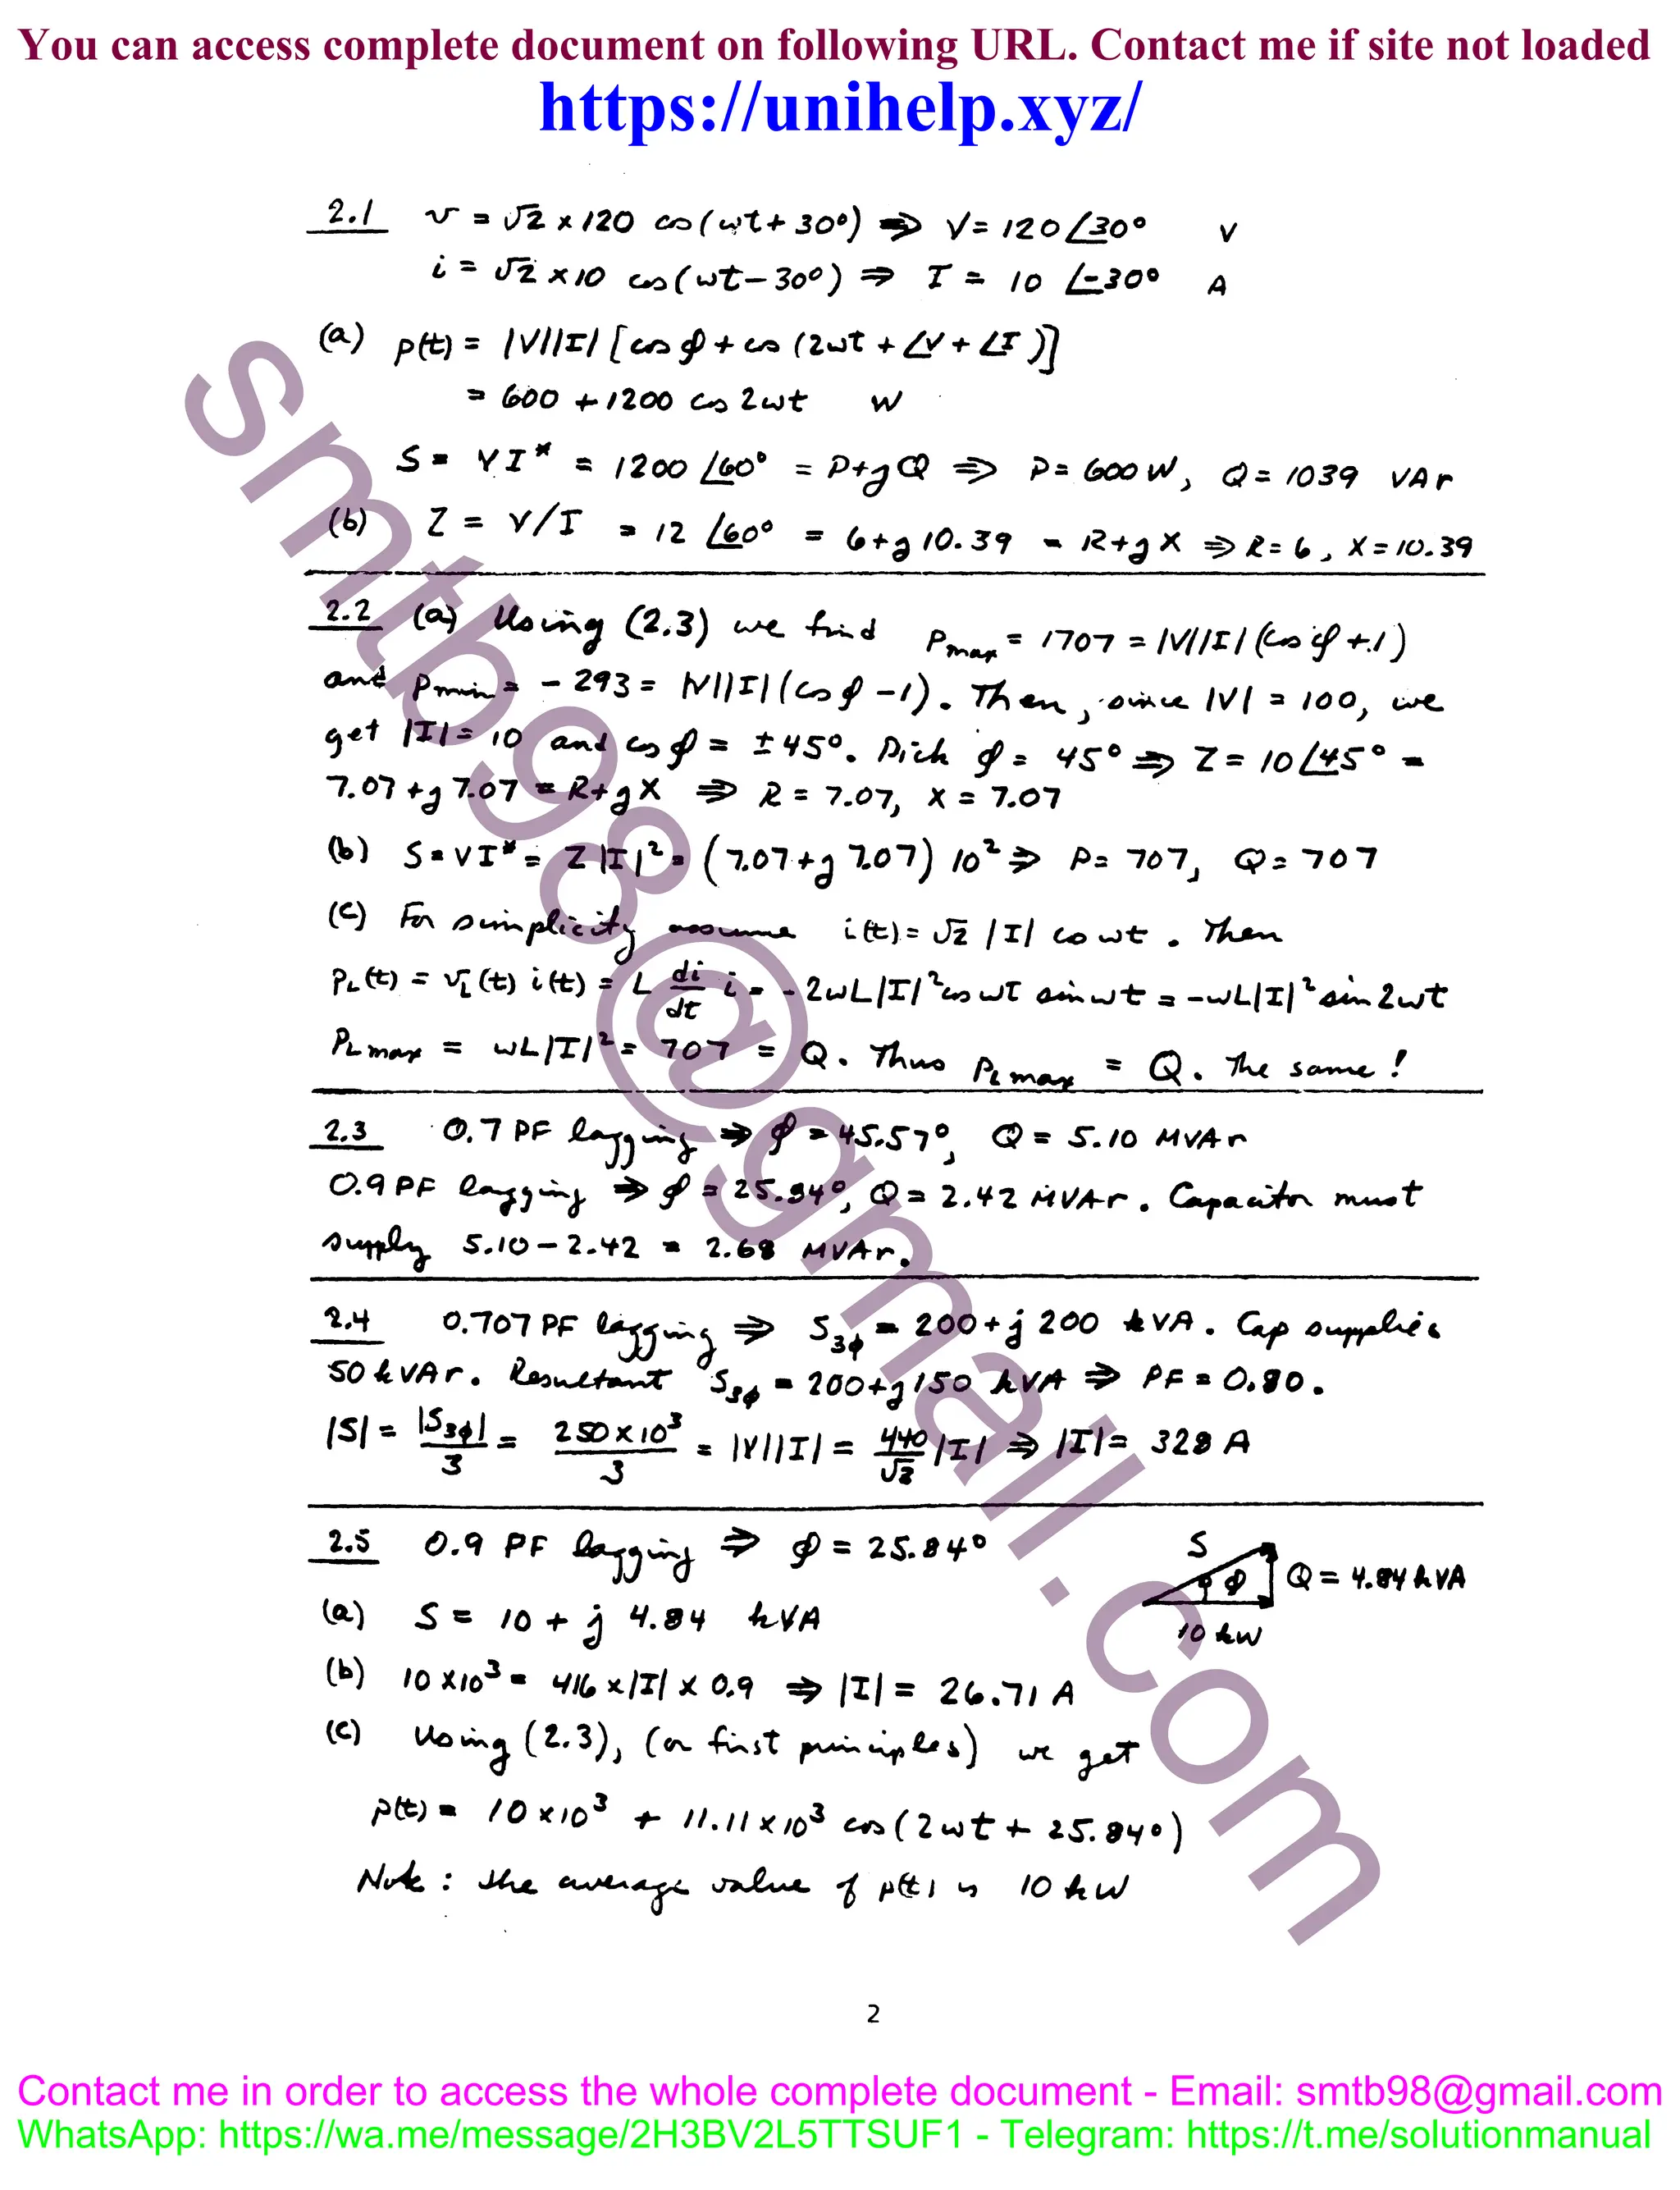 You can access complete document on following URL. Contact me if site not loaded
https://unihelp.xyz/
2.1 v = √2 × 120 cos(ωt + 30°) ⇒ V = 120 ∠30° V
i = √2 × 10 cos(ωt − 30°) ⇒ I = 10 ∠−30° A
(a) p(t) = |V||I| [cos φ + cos (2ωt + ∠V + ∠I)]
= 600 + 1200 cos 2ωt W
S = VI* = 1200 ∠60° = P + jQ ⇒ P = 600 W, Q = 1039 VAr
(b) Z = V/I = 12 ∠60° = 6 + j 10.39 = R + jX ⇒ R = 6, X = 10.39
2.2 (a) Using (2.3) we find Pmax = 1707 = |V||I| (cos φ + 1)
and Pmin = − 293 = |V||I| (cos φ − 1). Then, since |V| = 100, we
get |I| = 10 and cos φ = ± 45°. Pick φ = 45° ⇒ Z = 10 ∠45° =
7.07 + j 7.07 = R + jX ⇒ R = 7.07, X = 7.07
(b) S = VI* = Z |I|² = (7.07 + j 7.07) 10² ⇒ P = 707, Q = 707
(c) For simplicity assume i(t) = √2 |I| cos ωt. Then
PL(t) = vL(t) i(t) = L di/dt i = − 2ωL|I|² cos ωt sin ωt = −ωL|I|² sin 2ωt
PL max = ωL|I|² = 707 = Q. Thus PL max = Q. The same!
2.3 0.7 PF lagging ⇒ φ = 45.57°, Q = 5.10 MVAr
0.9 PF lagging ⇒ φ = 25.84°, Q = 2.42 MVAr. Capacitor must
supply 5.10 − 2.42 = 2.68 MVAr.
2.4 0.707 PF lagging ⇒ S3φ = 200 + j 200 kVA. Cap supplies
50 kVAr. Resultant S3φ = 200 + j 150 kVA ⇒ PF = 0.80.
|S| = |S3φ|/3 = 250 × 10³/3 = |V||I| = 440/√3 |I| ⇒ |I| = 328 A
2.5 0.9 PF lagging ⇒ φ = 25.84°
S φ Q = 4.84 kVA
10 kW
(a) S = 10 + j 4.84 kVA
(b) 10 × 10³ = 416 × |I| × 0.9 ⇒ |I| = 26.71 A
(c) Using (2.3), (or first principles) we get
p(t) = 10 × 10³ + 11.11 × 10³ cos (2ωt + 25.84°)
Note: the average value of p(t) is 10 kW
smtb98@gmail.com
2
Contact me in order to access the whole complete document - Email: smtb98@gmail.com
WhatsApp: https://wa.me/message/2H3BV2L5TTSUF1 - Telegram: https://t.me/solutionmanual